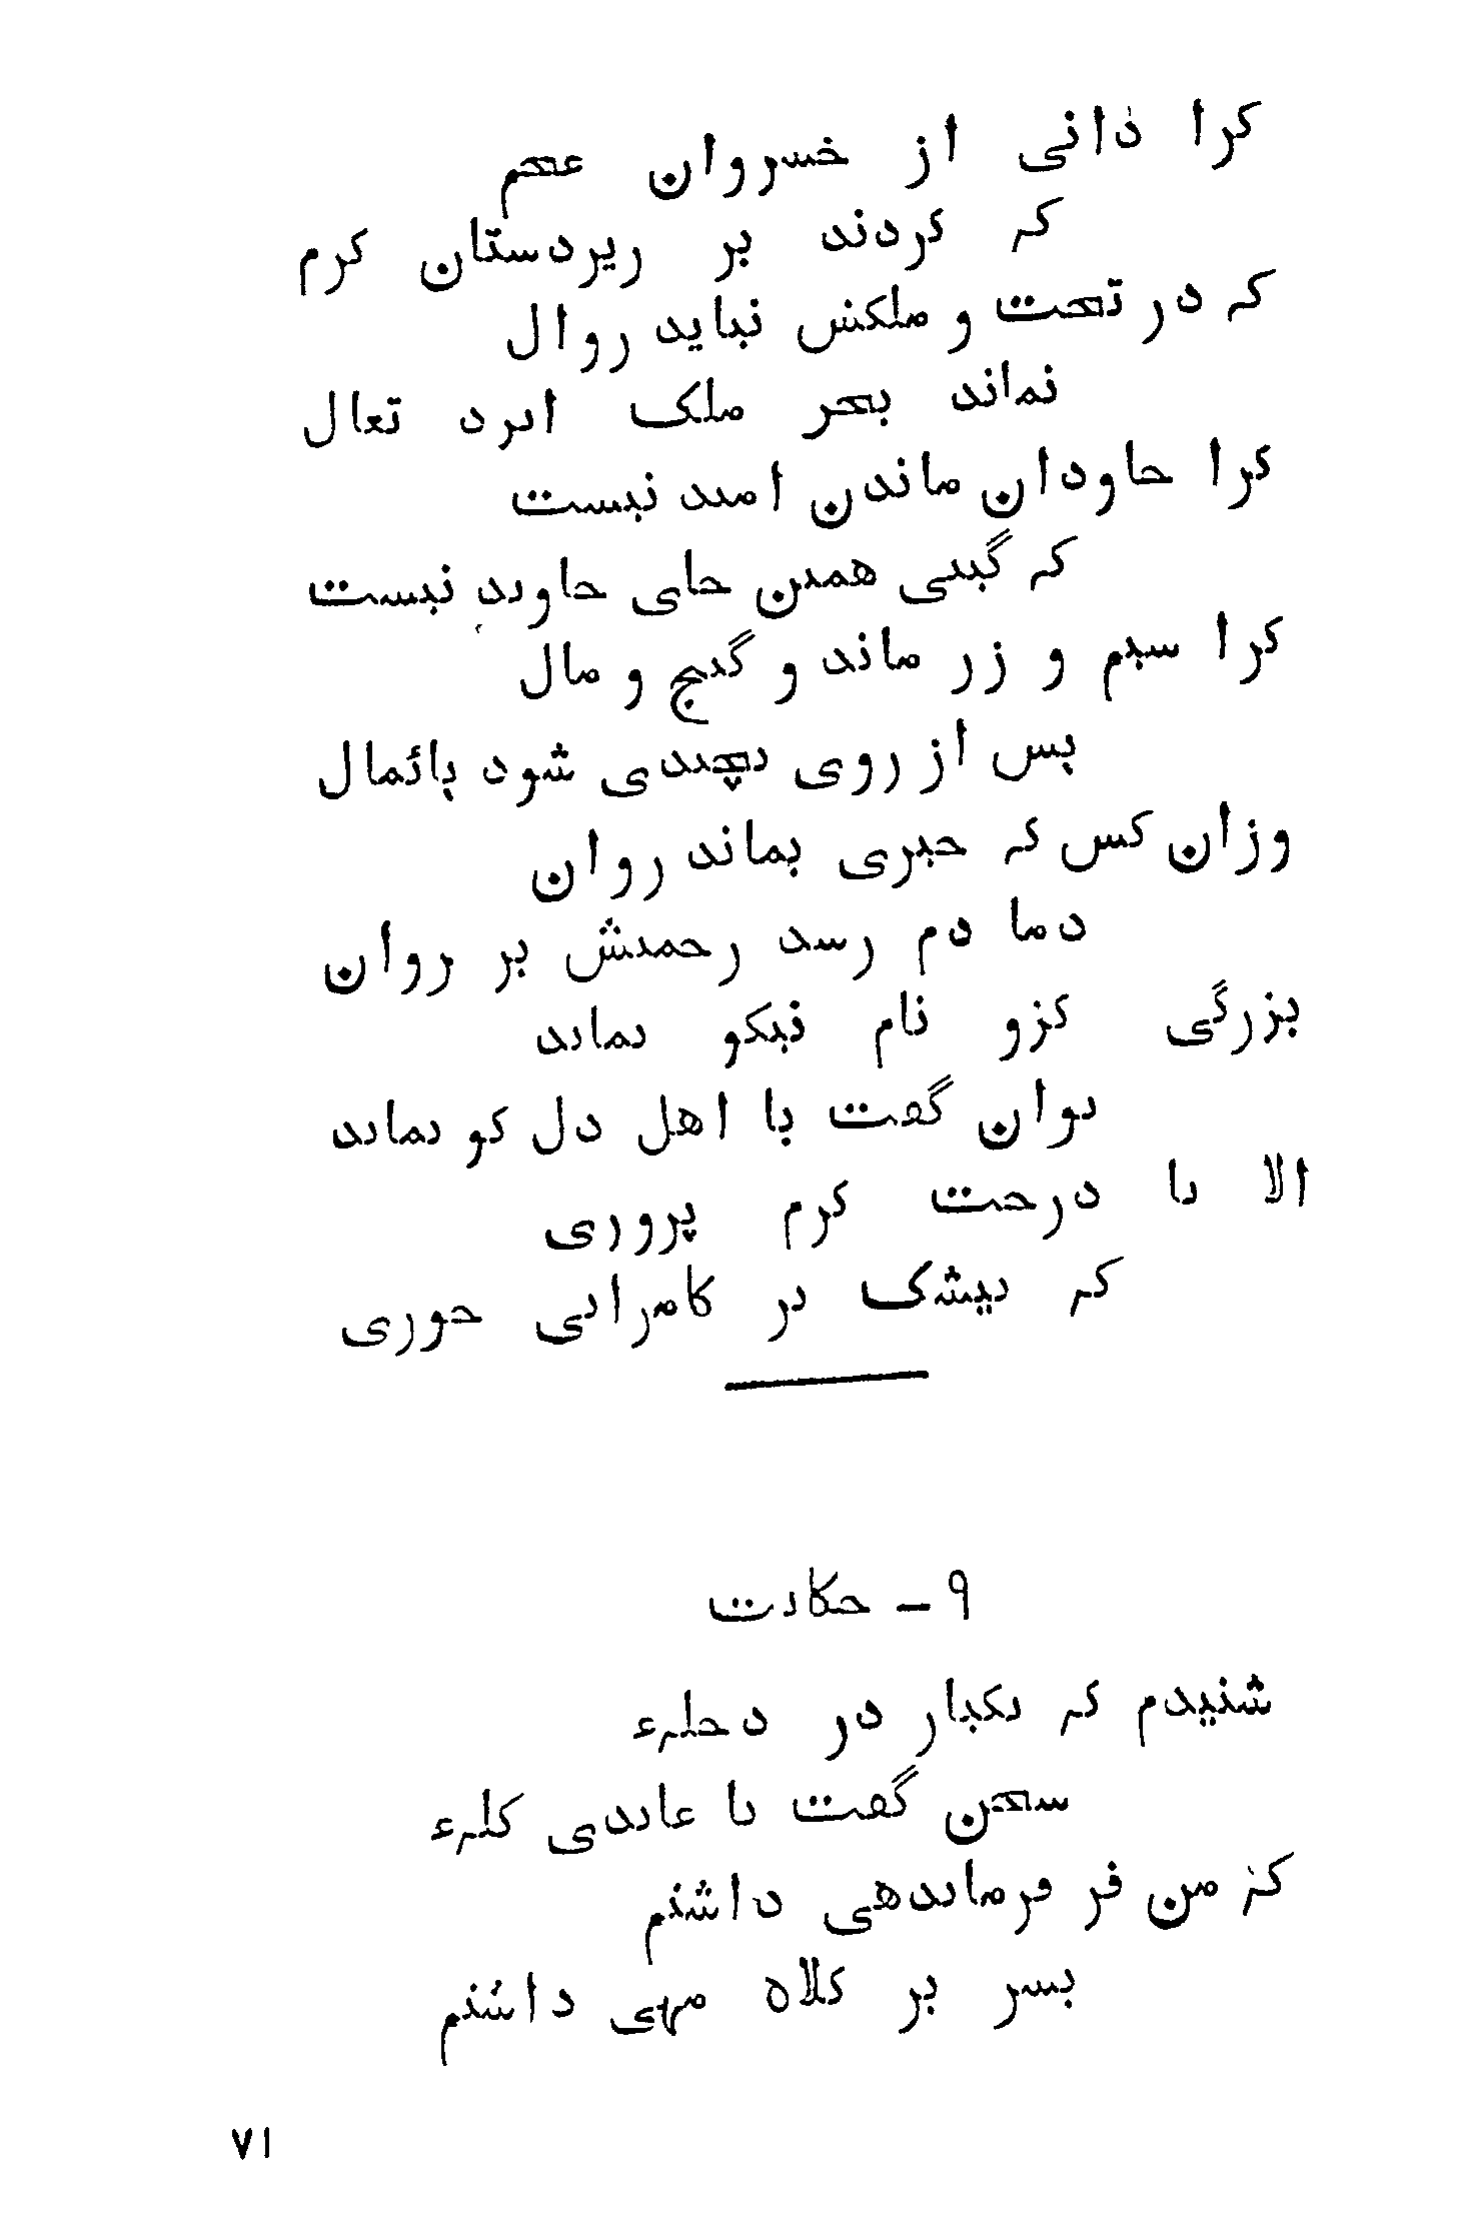 کرا دانی از خسروان عجم
که کردند بر زیردستان کرم
که در تخت و ملکش نیاید زوال
نماند بجز ملک ایزد تعال
کرا جاودان ماندن امید نیست
که گیتی همین جای جاوید نیست
کرا سیم و زر ماند و گنج و مال
پس از روی بچندی شود پائمال
وزان کس که خیری بماند روان
دما دم رسد رحمتش بر روان
بزرگی کزو نام نیکو نماند
توان گفت با اهل دل کو نماند
الا تا درخت کرم پروری
که بیشک بر کامرانی خوری
۹ – حکایت
شنیدم که یکبار در دجلهء
سخن گفت با عابدی کلهء
که من فر فرماندهی داشتم
بسر بر کلاه مهی داشتم
۷۱